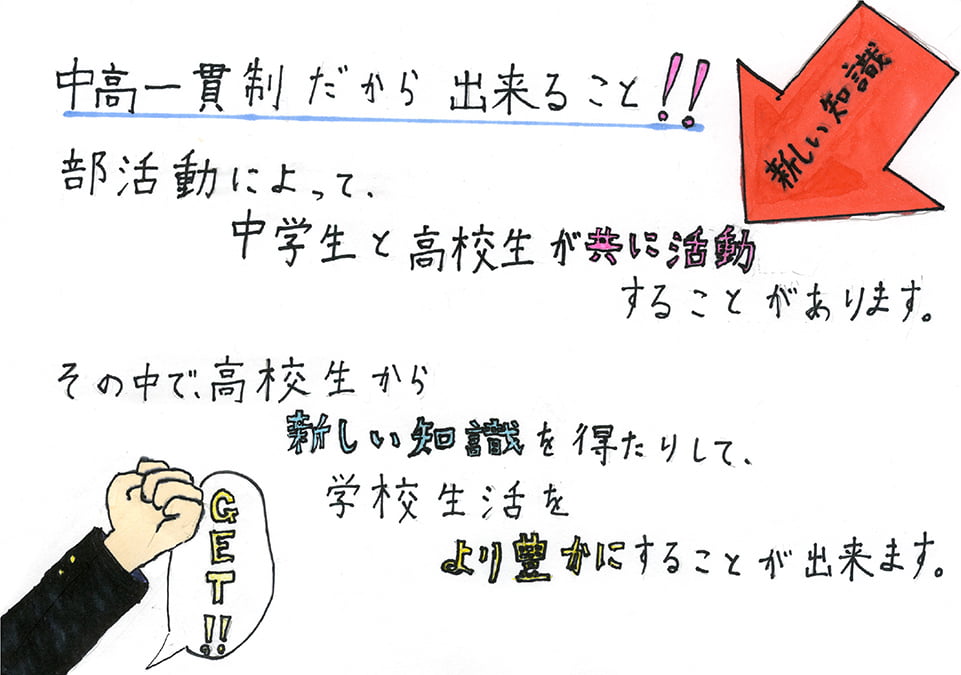 中高一貫制だから出来ること!!
新しい知識
部活動によって、
中学生と高校生が共に活動
することがあります。
その中で、高校生から
新しい知識を得たりして、
学校生活を
より豊かにすることが出来ます。
GET!!